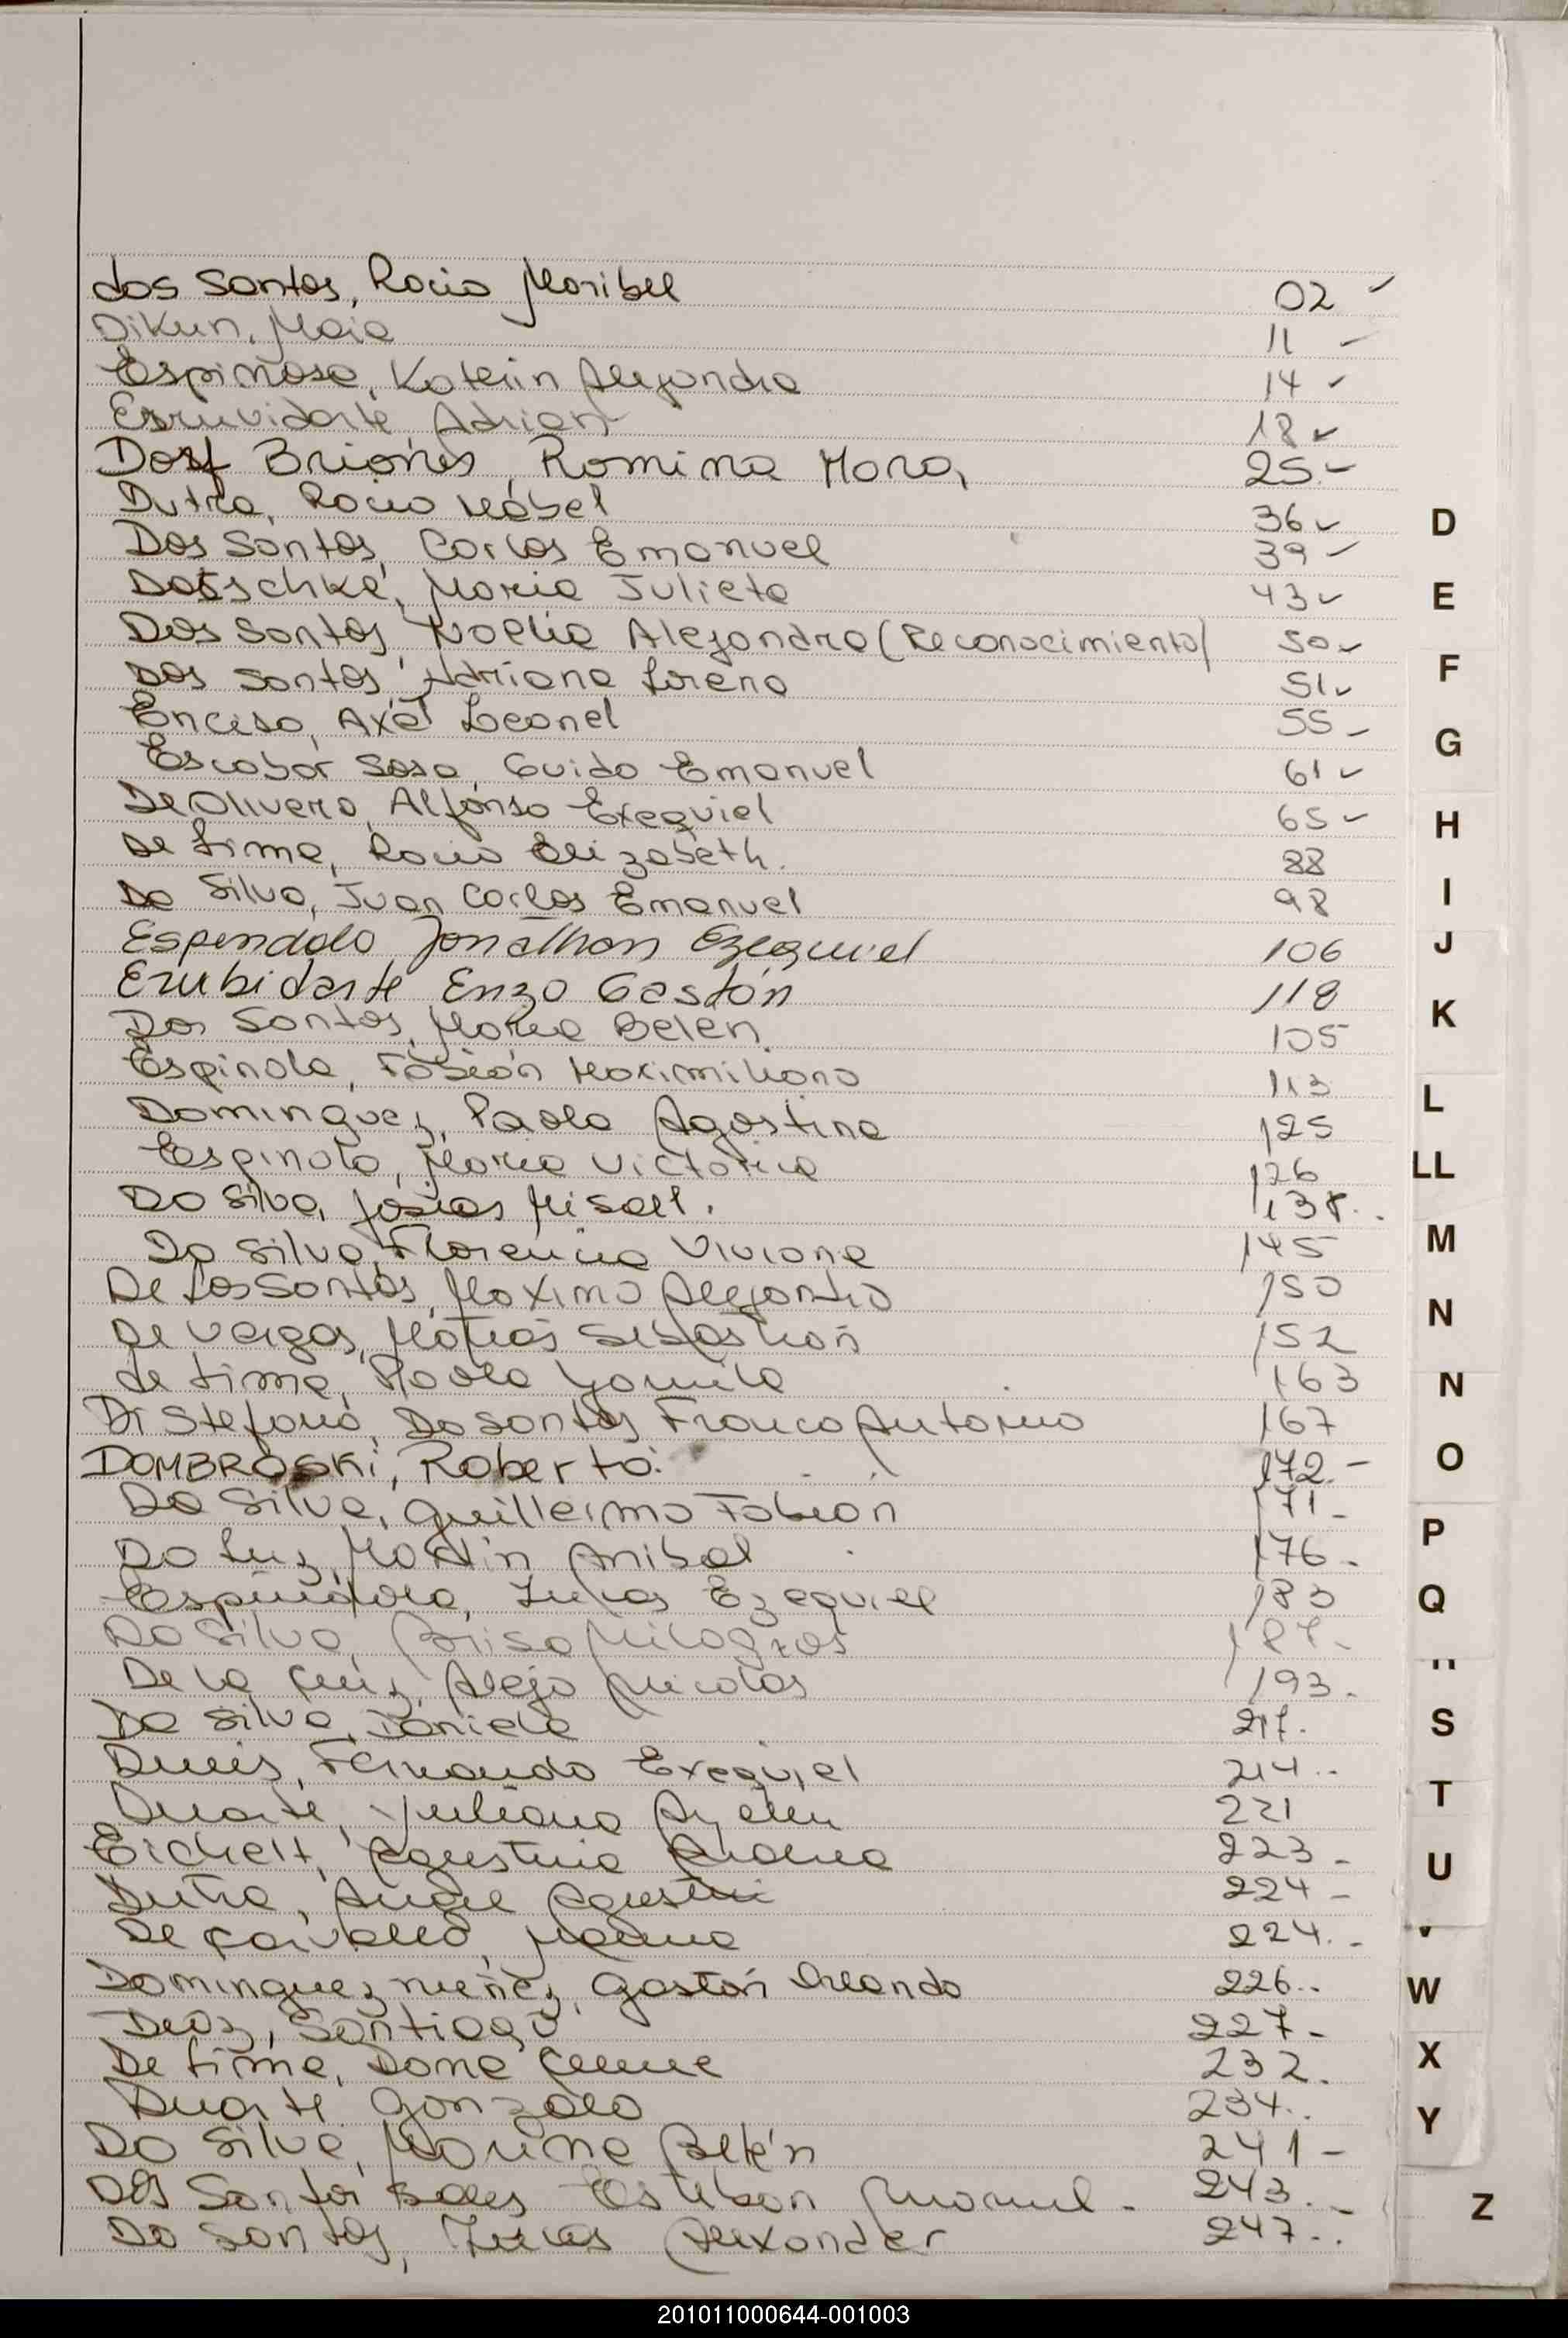 dos Santos, Rocio Maribel 02
Dikun, Maia 11
Espinosa, Katerin Alejandra 14
Esruvidarte, Adrian 18
Briones, Romina Mara, 25
Dutra, Rocio Mabel 36
Dos Santos, Carlos Emanuel 39
Maria Julieta 43
Dos Santos, Noelia Alejandra (Reconocimiento) 50
Dos Santos, Adriana Lorena 51
Enciso, Axel Leonel 55
Escobar Sosa, Guido Emanuel 61
De Olivera, Alfonso Exequiel 65
De Lima, Rocio Elizabeth. 88
Da Silva, Juan Carlos Emanuel 98
Espendolo Jonathan Ezequiel 106
Erubidarte Enzo Gastón 118
Dos Santos, Maria Belen 105
Espinola, Fabián Maximiliano 113
Dominguez, Paola Agostina 125
Espinola, Maria Victoria 126
Da Silva, Josias Misael. 138
Da Silva, Florencia Viviana 145
De Los Santos, Maximo Alejandro 150
De Vargas, Matias Sebastian 152
de Lima, Paola Yamila 163
Di Stefano, Dos Santos Franco Antonio 167
DOMBROSKi, Roberto. 172.
Da Silva, Guillermo Fabian 171
Da Luz, Martin Anibal 176
Espindola, Lucas Ezequiel 183
Da Silva, Brisa Milagros 187
De La Cruz, Alejo Nicolas 193.
Da Silva, Daniela 217.
Fernando Exequiel 214
Duarte, Juliana Ayelen 221
Eichelt, Agustina 223
Dutra, Agustin 224
De Carvalho, 224.
Dominguez Nuñez, Gastón Orlando 226
Diaz, Santiago 227
De Lima, 232.
Duarte Gonzalo 234
Da Silva, Marina Belén 241
Dos Santos Esteban Manuel 243
Do Santos, Lucas Alexander 247
D
E
F
G
H
I
J
K
L
LL
M
N
N
O
P
Q
S
T
U
W
X
Y
Z
201011000644-001003